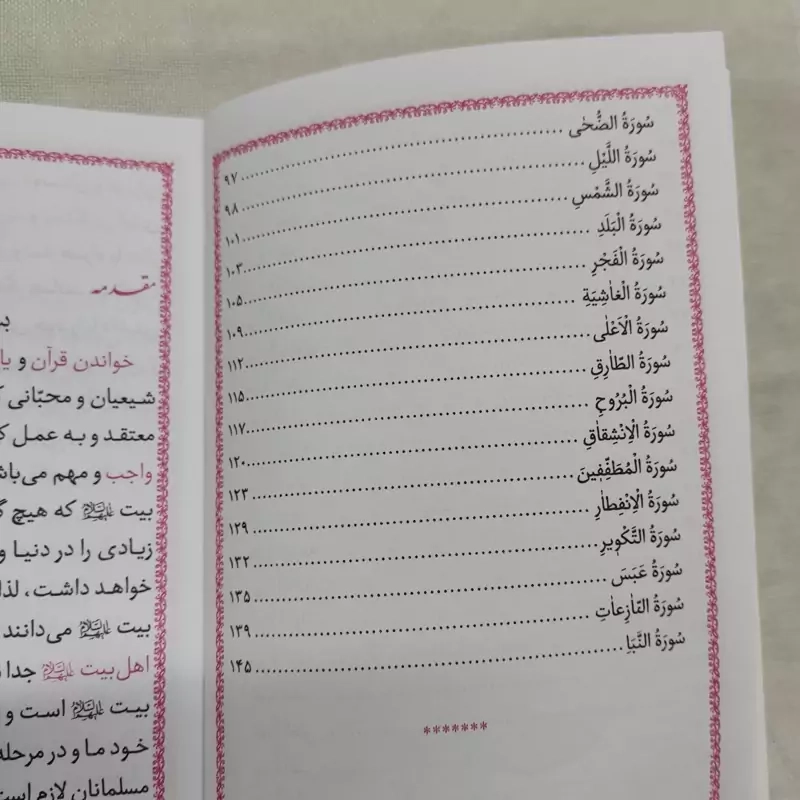 سُورَةُ الضُّحٰى .......... ۹۷
سُورَةُ اللَّيْلِ .......... ۹۸
سُورَةُ الشَّمْسِ .......... ۱۰۱
سُورَةُ الْبَلَدِ .......... ۱۰۳
سُورَةُ الْفَجْرِ .......... ۱۰۵
سُورَةُ الْغاٰشِيَةِ .......... ۱۰۹
سُورَةُ الْاَعْلٰى .......... ۱۱۲
سُورَةُ الطّاٰرِقِ .......... ۱۱۵
سُورَةُ الْبُرُوجِ .......... ۱۱۷
سُورَةُ الْاِنْشِقاٰقِ .......... ۱۲۰
سُورَةُ الْمُطَفِّفينَ .......... ۱۲۳
سُورَةُ الْاِنْفِطاٰرِ .......... ۱۲۹
سُورَةُ التَّكْويرِ .......... ۱۳۲
سُورَةُ عَبَسَ .......... ۱۳۵
سُورَةُ النّاٰزِعاٰتِ .......... ۱۳۹
سُورَةُ النَّبَاِ .......... ۱۴۵
*******
مقدمه
خواندن قرآن و
شیعیان و محبّانی
معتقد و به عمل
واجب و مهم می‌باش
بیت علیهم‌السلام که هیچ
زیادی را در دنیا و
خواهد داشت، لذا
بیت علیهم‌السلام می‌دانند
اهل‌بیت علیهم‌السلام جدا
بیت علیهم‌السلام است و
خود ما و در مرحله
مسلمانان لازم است